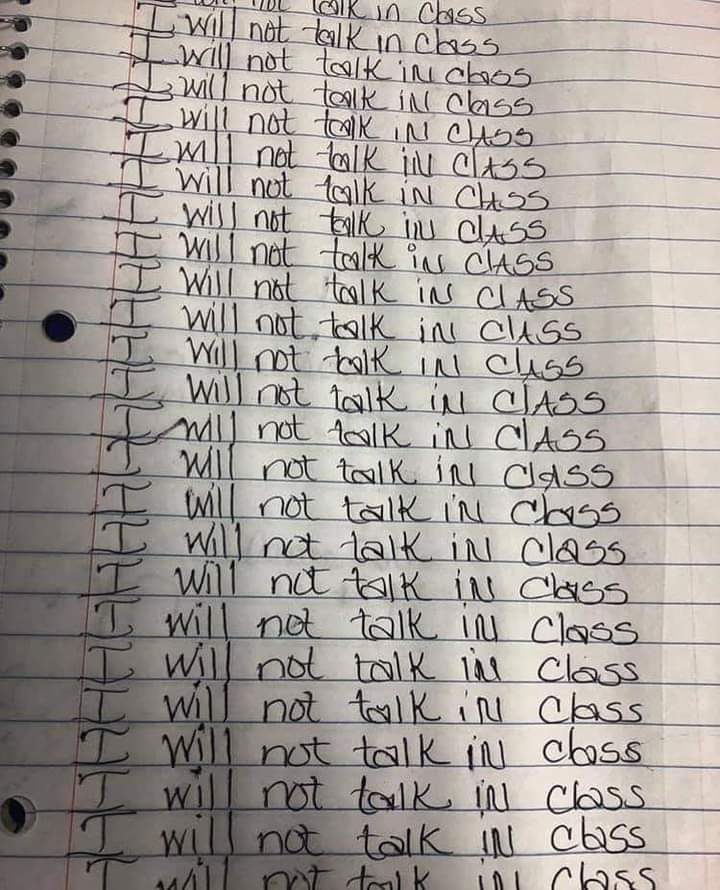 not talk in Class
I will not talk in Class
I will not talk iN Class
I will not talk iN Class
I will not talk iN ClASS
I will not talk iN ClASS
I will not talk iN ClASS
I will not talk iN ClASS
I will not talk iN ClASS
I will not talk iN ClASS
I will not talk iN ClASS
I will not talk iN ClASS
I will not talk iN ClASS
I will not talk iN ClASS
I will not talk iN ClASS
I will not talk iN Class
I will not talk iN Class
I will not talk iN Class
I will not talk iN Class
I will not talk iN Class
I will not talk iN Class
I will not talk iN Class
I will not talk iN Class
I will not talk iN Class
I will not talk iN Class